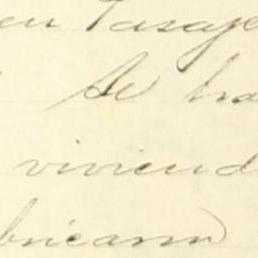 en Pasaje
Se ha
viviend
bricann